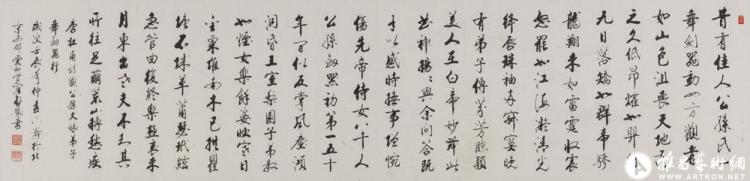 昔有佳人公孫氏一
舞劍器動四方觀者
如山色沮喪天地爲
之久低昂㸌如羿射
九日落矯如群帝驂
龍翔來如雷霆收震
怒罷如江海凝清光
絳唇珠袖兩寂寞晚
有弟子傳芬芳臨潁
美人在白帝妙舞此
曲神揚揚與余問答既
有以感時撫事增惋
傷先帝侍女八千人
公孫劍器初第一五十
年間似反掌風塵澒
洞昏王室梨園子弟散
如煙女樂餘姿映寒日
金粟堆南木已拱瞿
塘石城草蕭瑟玳筵
急管曲復終樂極哀來
月東出老夫不知其
所往足繭荒山轉愁疾
唐杜甫詩觀公孫大娘弟子
舞劍器行
歲次壬辰年仲春於北
京
雅昌藝術網
WWW.ARTRON.NET